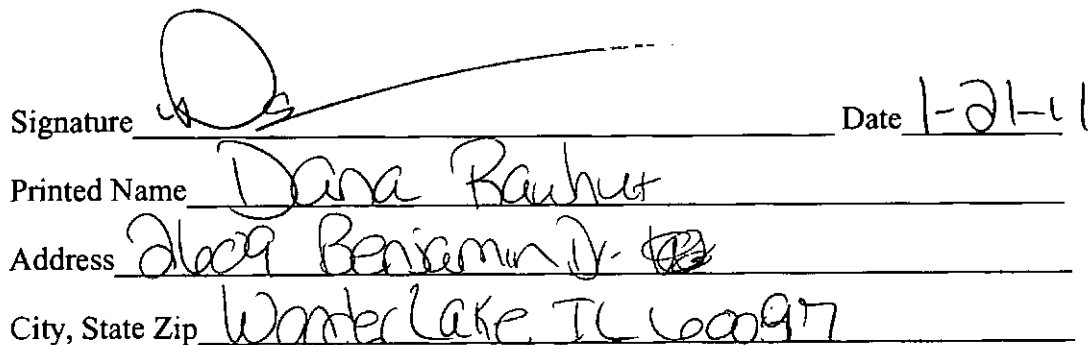 Signature Date 1-21-11
Printed Name Dana Rauhut
Address 2609 Benjamin Dr.
City, State Zip Wonder Lake IL 60097